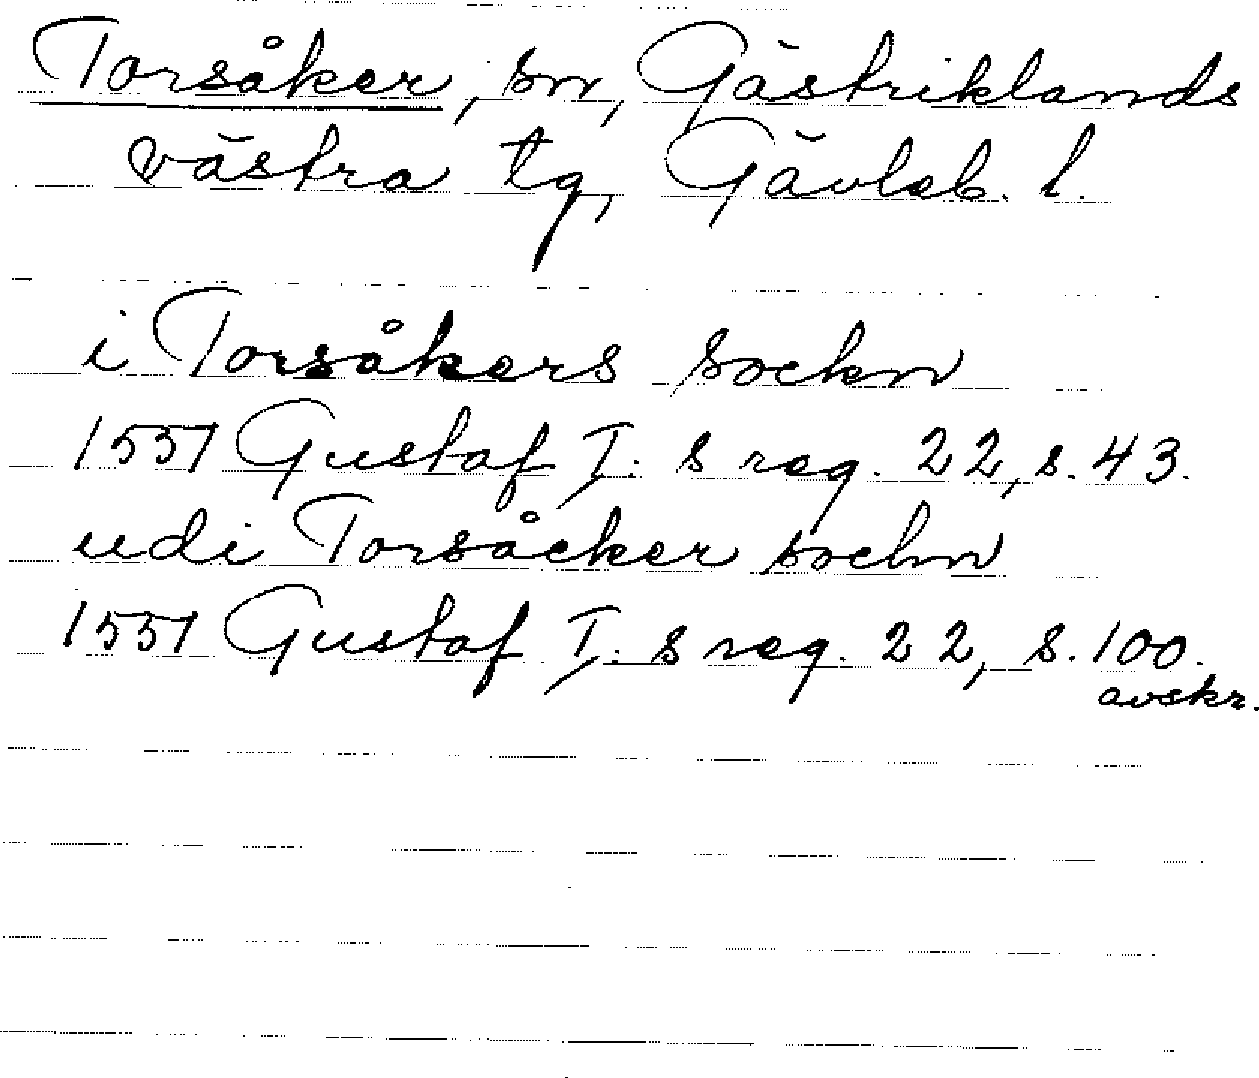 Torsåker, sn, Gästriklands
västra tg, Gävleb. l.
i Torsåkers sockn
1551 Gustaf I. s reg. 22, s. 43.
udi Torsåcker sochn
1551 Gustaf I. s reg. 22, s. 100.
avskr.